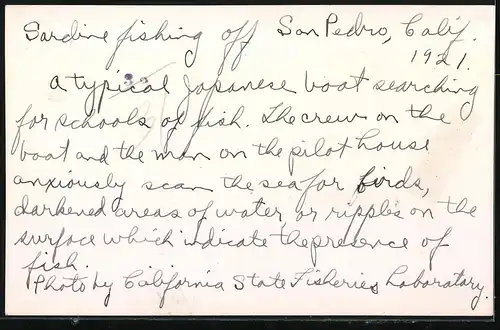 Sardine fishing off San Pedro, Calif.
1921.
A typical Japanese boat searching
for schools of fish. The crew on the
boat and the man on the pilot house
anxiously scan the sea for birds,
darkened areas of water, or ripples on the
surface which indicate the presence of
fish.
Photo by California State Fisheries Laboratory.